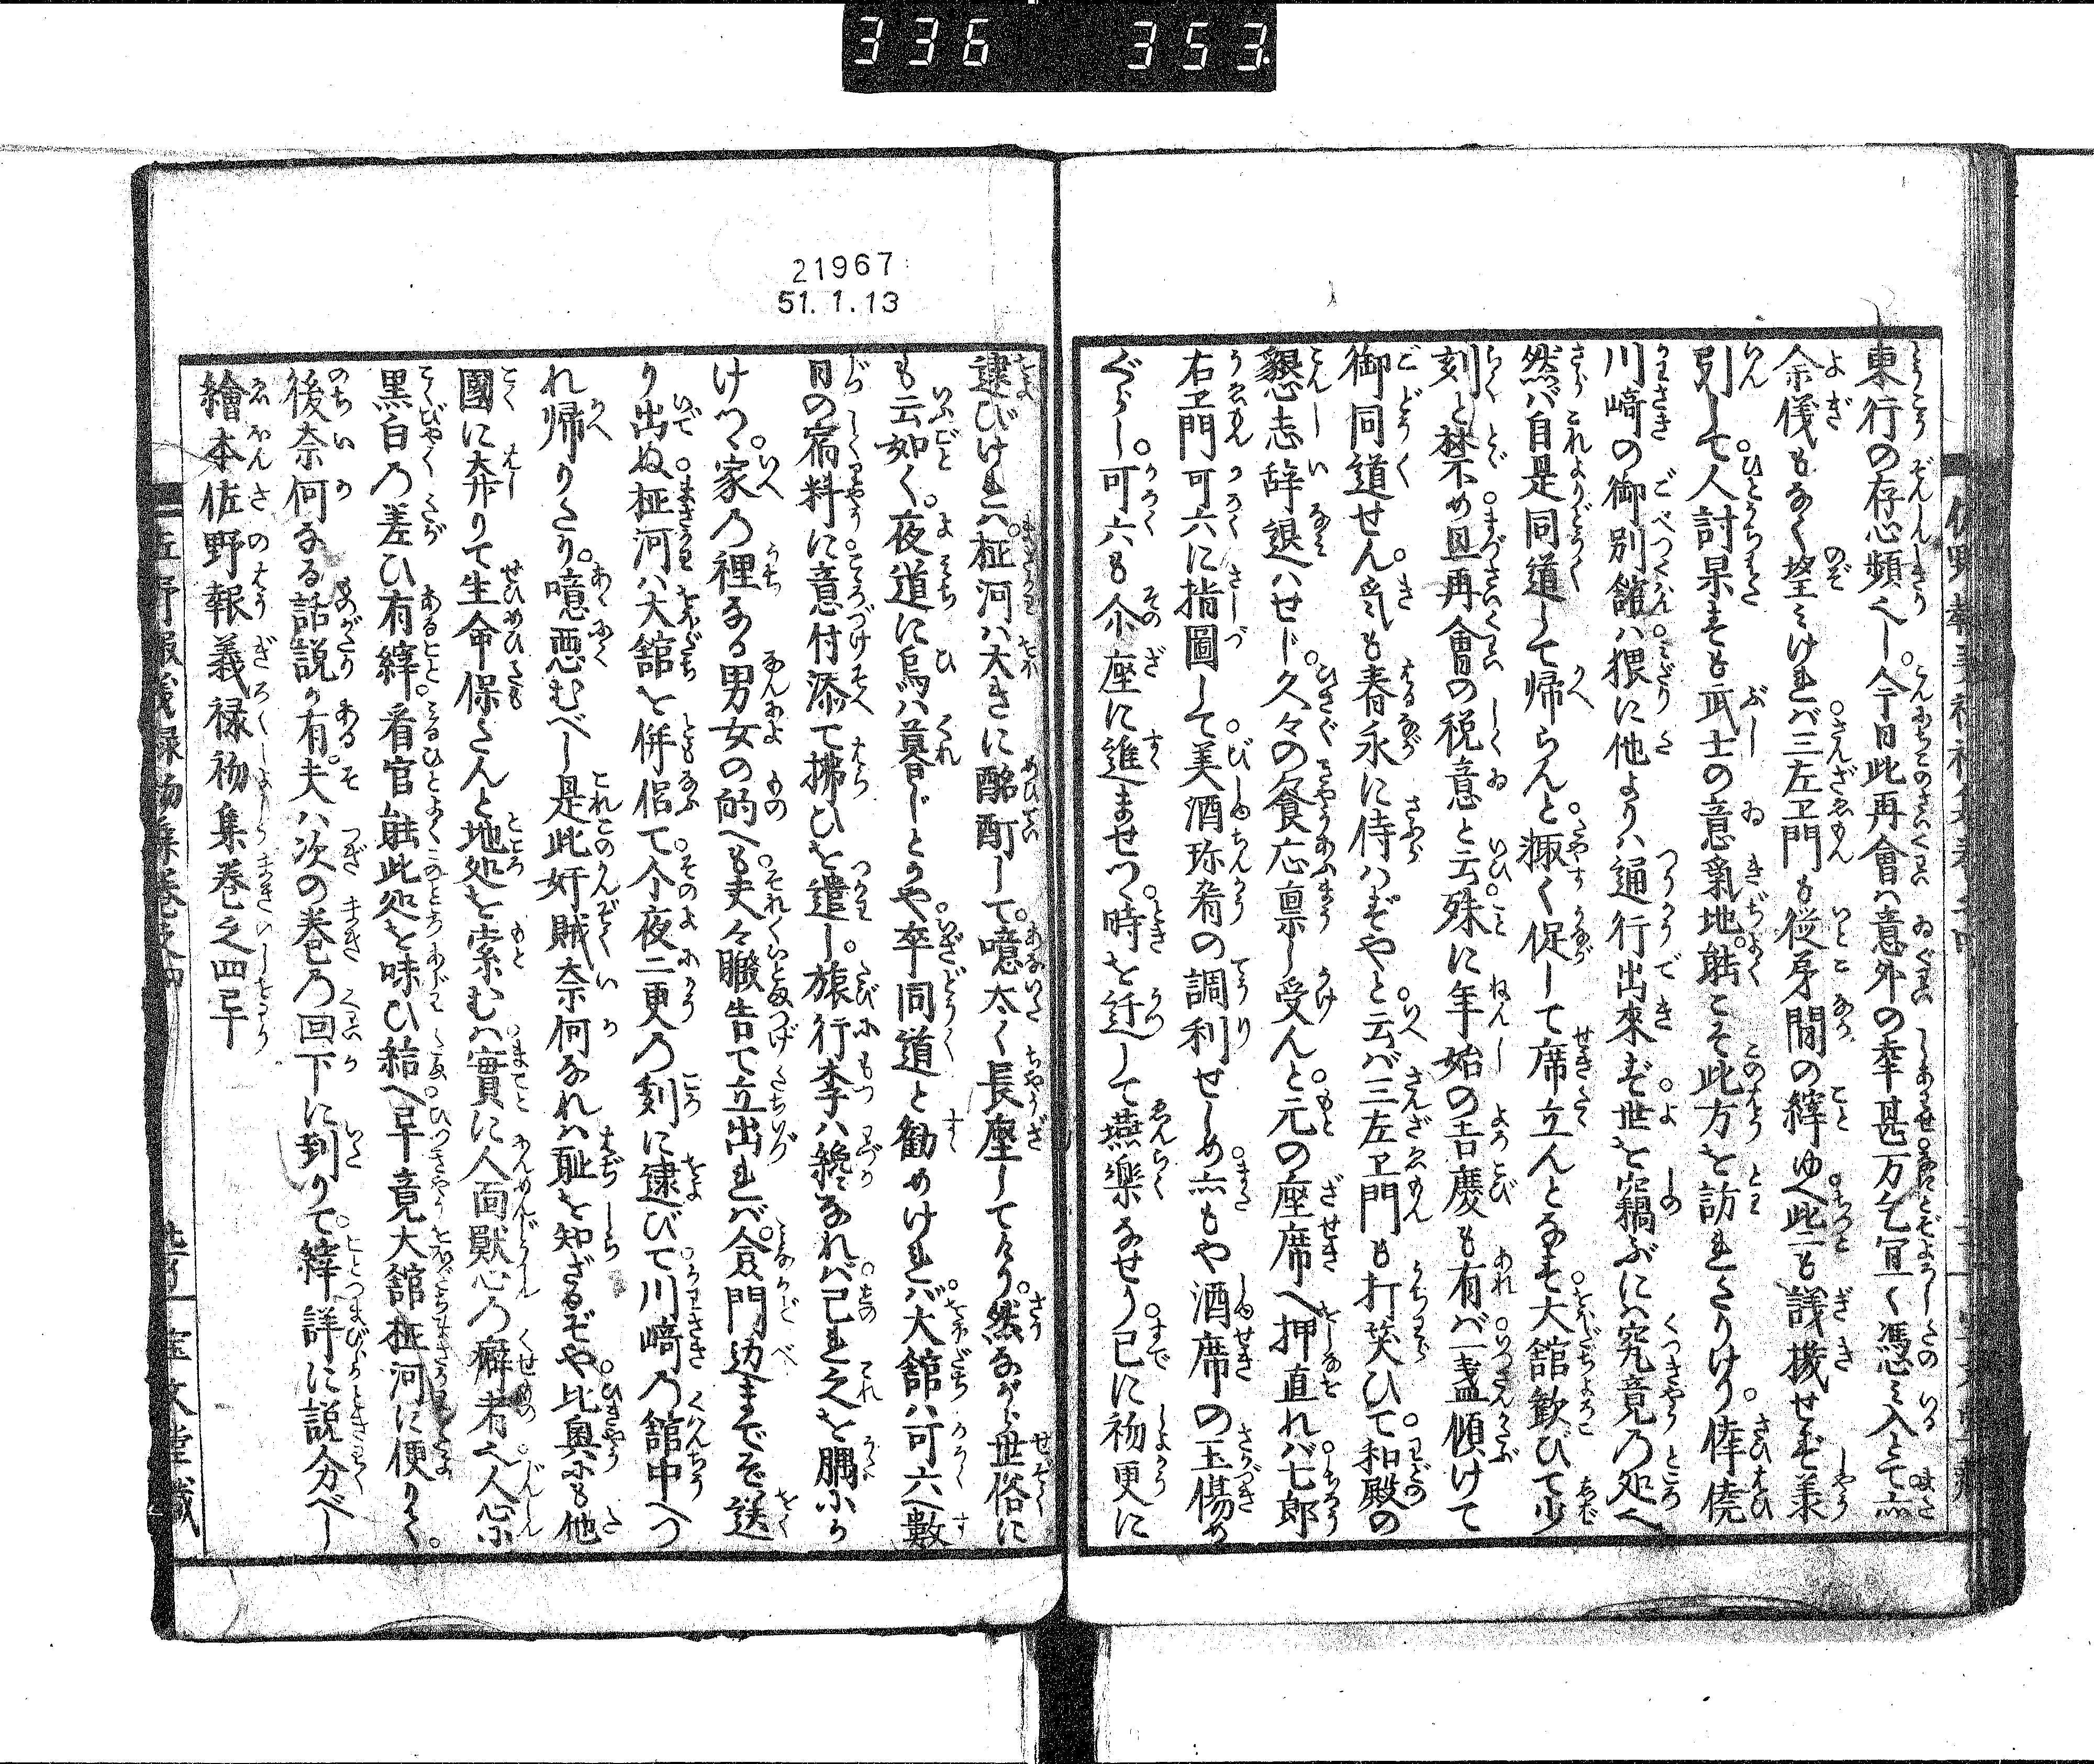 336 353
東行の存心頻へし。今日此再會ハ意外の幸甚万乞宜く憑ミ入とて亦
余儀もなく望ミけれバ三左ヱ門も従弟間の縡ゆへ此二も議擬せず義
引して。人討果すも武士の意氣地。能こそ此方を訪れたりけり。倖僥
川﨑の御別舘ハ猥に他よりハ通行出來ず。世を竊ぶにハ究竟の処へ
然バ自是同道して帰らんと。輙く促して席立んとなす。大舘歓びて少
刻と禁め。且再會の税意と云。殊に年始の吉慶も有バ一盞傾けて
御同道せん。気も春永に侍ハずやと云バ三左ヱ門も打笑ひて。和殿の
懇志辞退ハせじ。久々の餐応禀し受んと。元の座席へ押直れバ。七郎
右ヱ門可六に指圖して。美酒珎肴の調利せしめ。亦もや酒席の玉傷め
ぐらし。可六も尒座に進ませつゝ。時を迁して燕樂なせり。已に初更に
21967
51.1.13
逮びけれハ。柾河ハ大きに酩酊して。噫太く長座してけり。然ながら世俗に
も云如く。夜道に烏ハ暮じとかや。卒同道と勧めけれバ。大舘ハ可六へ數
日の宿料に意付添て拂ひを遣し。旅行李ハ纔なれバ己れ之を腢ふか
けつゝ。家の裡なる男女の的へも夫々職告て立出れバ。僉門边までぞ送
り出ぬ。柾河ハ大舘を併侶て。今夜二更の刻に逮びて。川﨑の舘中へつ
れ帰りたり。噫悪むべし是此奸賊奈何なれハ恥を知ざるぞや。比奥にも他
國に奔りて生命保さんと地処を索むハ。實に人面獣心の癖者也。人心ふ
黒白の差ひ有縡。看官能此処を味ひ給へ。早竟大舘柾河に便りて。
後奈何なる話説か有。夫ハ次の巻の回下に到りて。縡詳に説分べし
繪本佐野報義禄初集巻之四畢